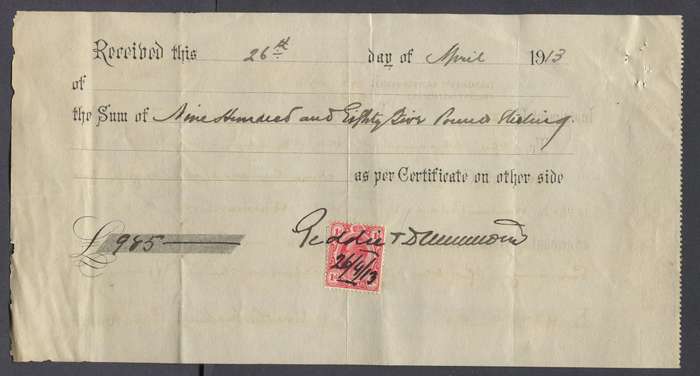 Received this 26th day of April 1913
of
the Sum of Nine Hundred and Eighty Five Pounds Sterling.
as per Certificate on other side
£ 985
Geddie & Drummond
26/4/13